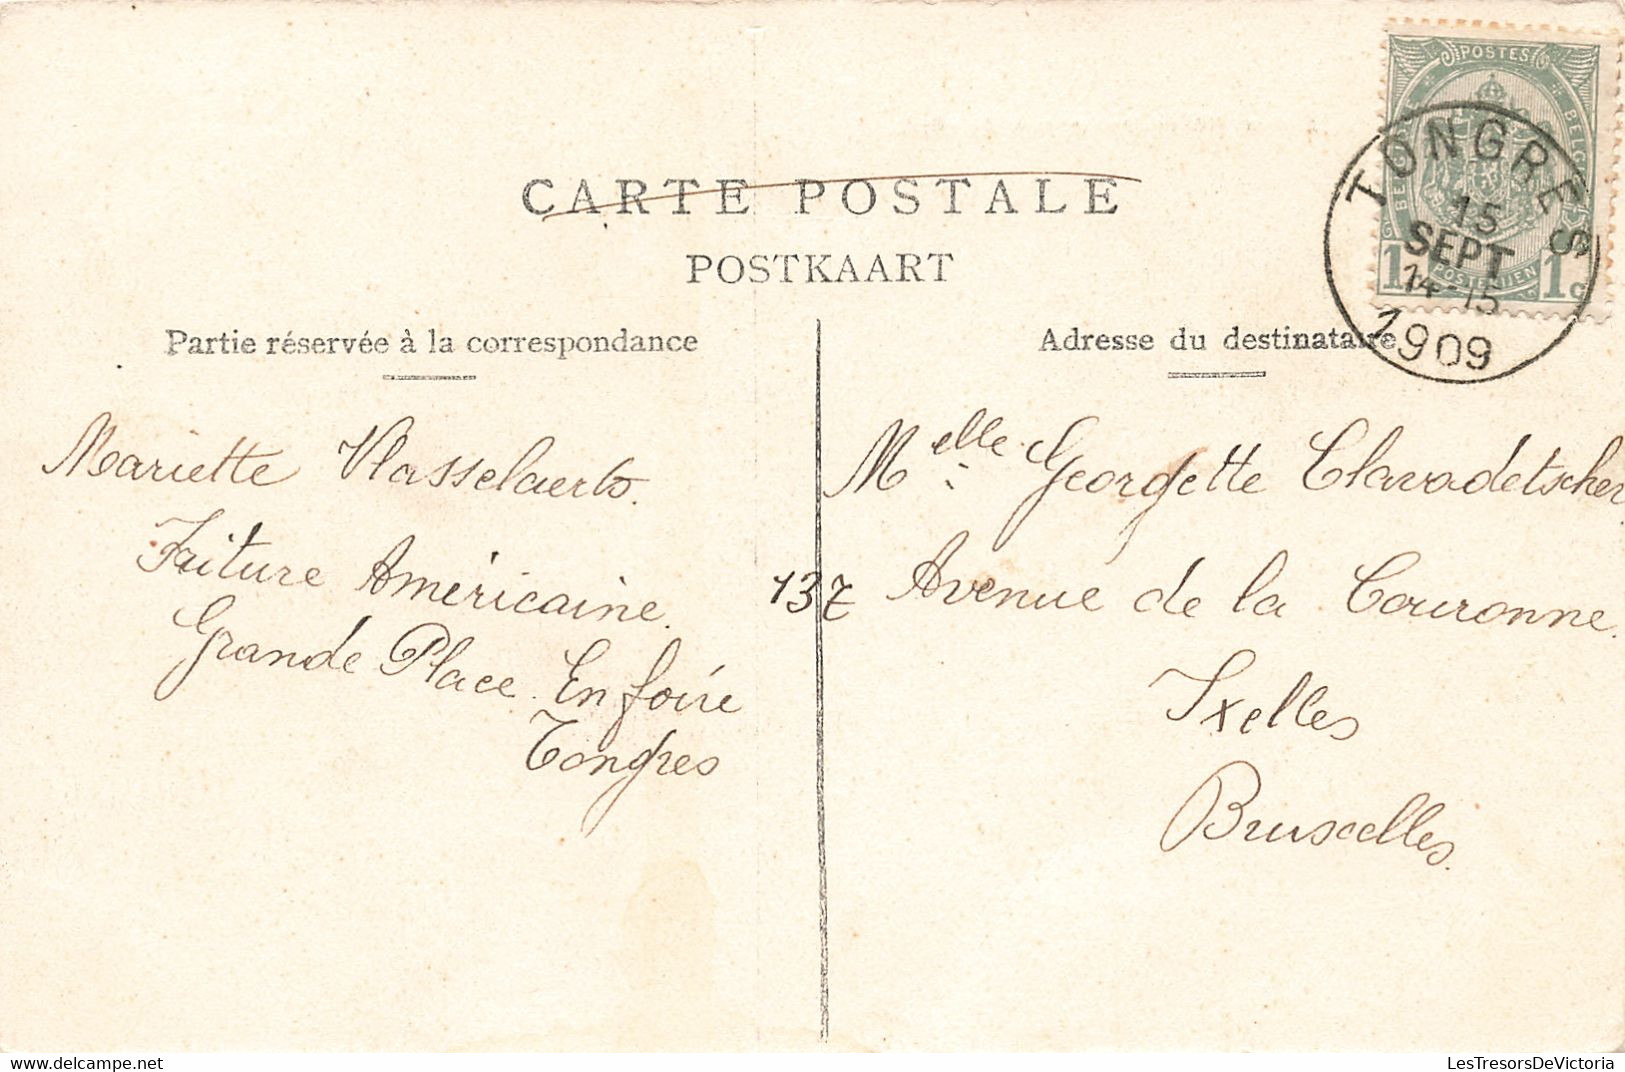 CARTE POSTALE
POSTKAART
Partie réservée à la correspondance
Adresse du destinataire
POSTES
BELGIQUE
BELGIE
POSTERIJEN
1c 1c
TONGRES
15
SEPT
14-15
1909
Mariette Vlasselaerts.
Friture Américaine.
Grande Place. En foire
Tongres
Melle Georgette Clavadetscher
137 Avenue de la Couronne.
Ixelles
Bruxelles.
LesTresorsDeVictoria